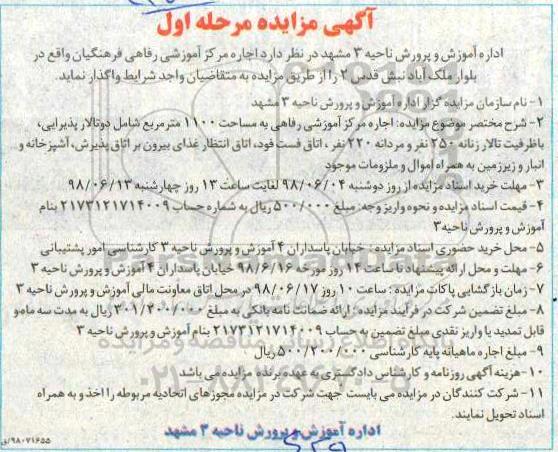 آگهی مزایده مرحله اول
اداره آموزش و پرورش ناحیه ۳ مشهد در نظر دارد اجاره مرکز آموزشی رفاهی فرهنگیان واقع در
بلوار ملک آباد نبش قدس ۲ را از طریق مزایده به متقاضیان واجد شرایط واگذار نماید.
۱- نام سازمان مزایده گزار: اداره آموزش و پرورش ناحیه ۳ مشهد
۲- شرح مختصر موضوع مزایده: اجاره مرکز آموزشی رفاهی به مساحت ۱۱۰۰ مترمربع شامل دوتالار پذیرایی،
باظرفیت تالار زنانه ۲۵۰ نفر و مردانه ۲۲۰ نفر ، اتاق فست فود، اتاق انتظار غذای بیرون بر اتاق پذیرش، آشپزخانه و
انبار و زیرزمین به همراه اموال و ملزومات موجود
۳- مهلت خرید اسناد مزایده از روز دوشنبه ۹۸/۰۶/۰۴ لغایت ساعت ۱۳ روز چهارشنبه ۹۸/۰۶/۱۳
۴- قیمت اسناد مزایده و نحوه واریز وجه: مبلغ ۵۰۰/۰۰۰ ریال به شماره حساب ۲۱۷۳۱۲۱۷۱۴۰۰۹ بنام
آموزش و پرورش ناحیه۳
۵- محل خرید حضوری اسناد مزایده: خیابان پاسداران ۴ آموزش و پرورش ناحیه ۳ کارشناسی امور پشتیبانی
۶- مهلت و محل ارائه پیشنهاد تا ساعت ۱۴ روز مورخه ۹۸/۶/۱۶ خیابان پاسداران ۴ آموزش و پرورش ناحیه ۳
۷- زمان بازگشایی پاکات مزایده : ساعت ۱۰ روز ۹۸/۰۶/۱۷ در محل اتاق معاونت مالی آموزش و پرورش ناحیه ۳
۸- مبلغ تضمین شرکت در فرآیند مزایده : ارائه ضمانت نامه بانکی به مبلغ ۳۰۱/۲۰۰/۰۰۰ ریال به مدت سه ماه و
قابل تمدید یا واریز نقدی مبلغ تضمین به حساب ۲۱۷۳۱۲۱۷۱۴۰۰۹ بنام آموزش و پرورش ناحیه ۳
۹- مبلغ اجاره ماهیانه پایه کارشناسی ۵۰۰/۲۰۰/۰۰۰ ریال
۱۰-هزینه آگهی روزنامه و کارشناس دادگستری به عهده برنده مزایده می باشد
۱۱- شرکت کنندگان در مزایده می بایست جهت شرکت در مزایده مجوزهای اتحادیه مربوطه را اخذ و به همراه
اسناد تحویل نمایند.
اداره آموزش و پرورش ناحیه ۳ مشهد
۹۸۰۷۱۶۵۵/ق
ParsNamadData
پایگاه اطلاع رسانی مناقصه و مزایده
۰۲۱-۸۸۳۴۹۶۷۰-۵